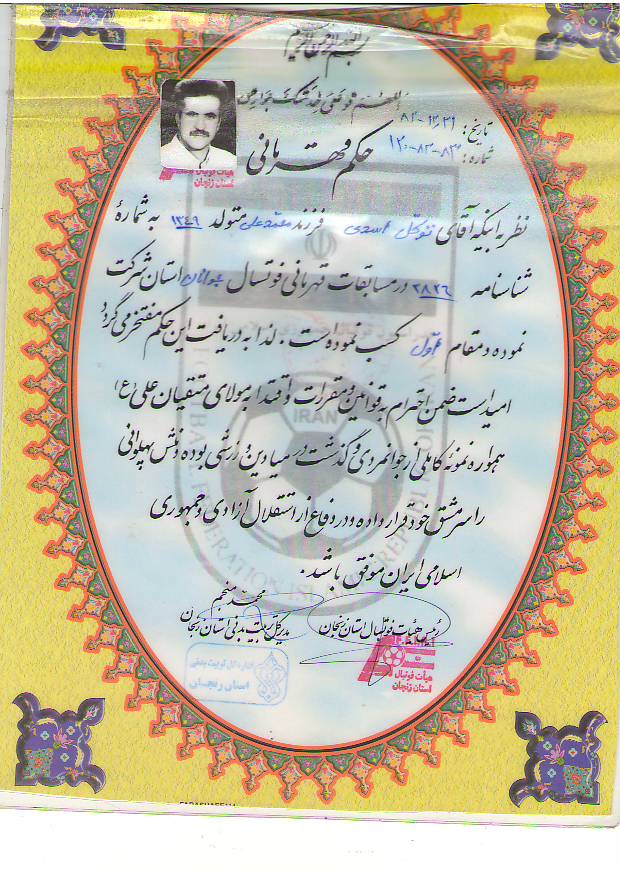 بسم الله الرحمن الرحیم
اللهم قو علی خدمتک جوارحی
تاریخ: ۸۲-۱۲-۲۹
شماره: ۱۲۰-۸۳-۸۳۰
حکم قهرمانی
هیأت فوتبال
استان زنجان
نظر به اینکه آقای توکل اسدی فرزند محمدعلی متولد ۱۳۴۹ به شمارهٔ
شناسنامه ۲۸۲۶ در مسابقات قهرمانی فوتسال جوانان استان شرکت
نموده و مقام اول کسب نموده است. لذا به دریافت این حکم مفتخر می گردد
امید است ضمن احترام به قوانین و مقررات و اقتدا به مولای متقیان علی (ع)
همواره نمونهٔ کاملی از جوانمردی و گذشت در میادین ورزشی بوده و منش پهلوانی
را سرمشق خود قرار داده و در دفاع از استقلال آزادی و جمهوری
اسلامی ایران موفق باشد.
محمد منجم
مدیر کل تربیت بدنی استان زنجان
رئیس هیئات فوتبال استان زنجان
اداره کل تربیت بدنی
استان زنجان
هیأت فوتبال
استان زنجان
IRAN
FOOTBALL FEDERATION ISLAMIC REPUBLIC OF IRAN